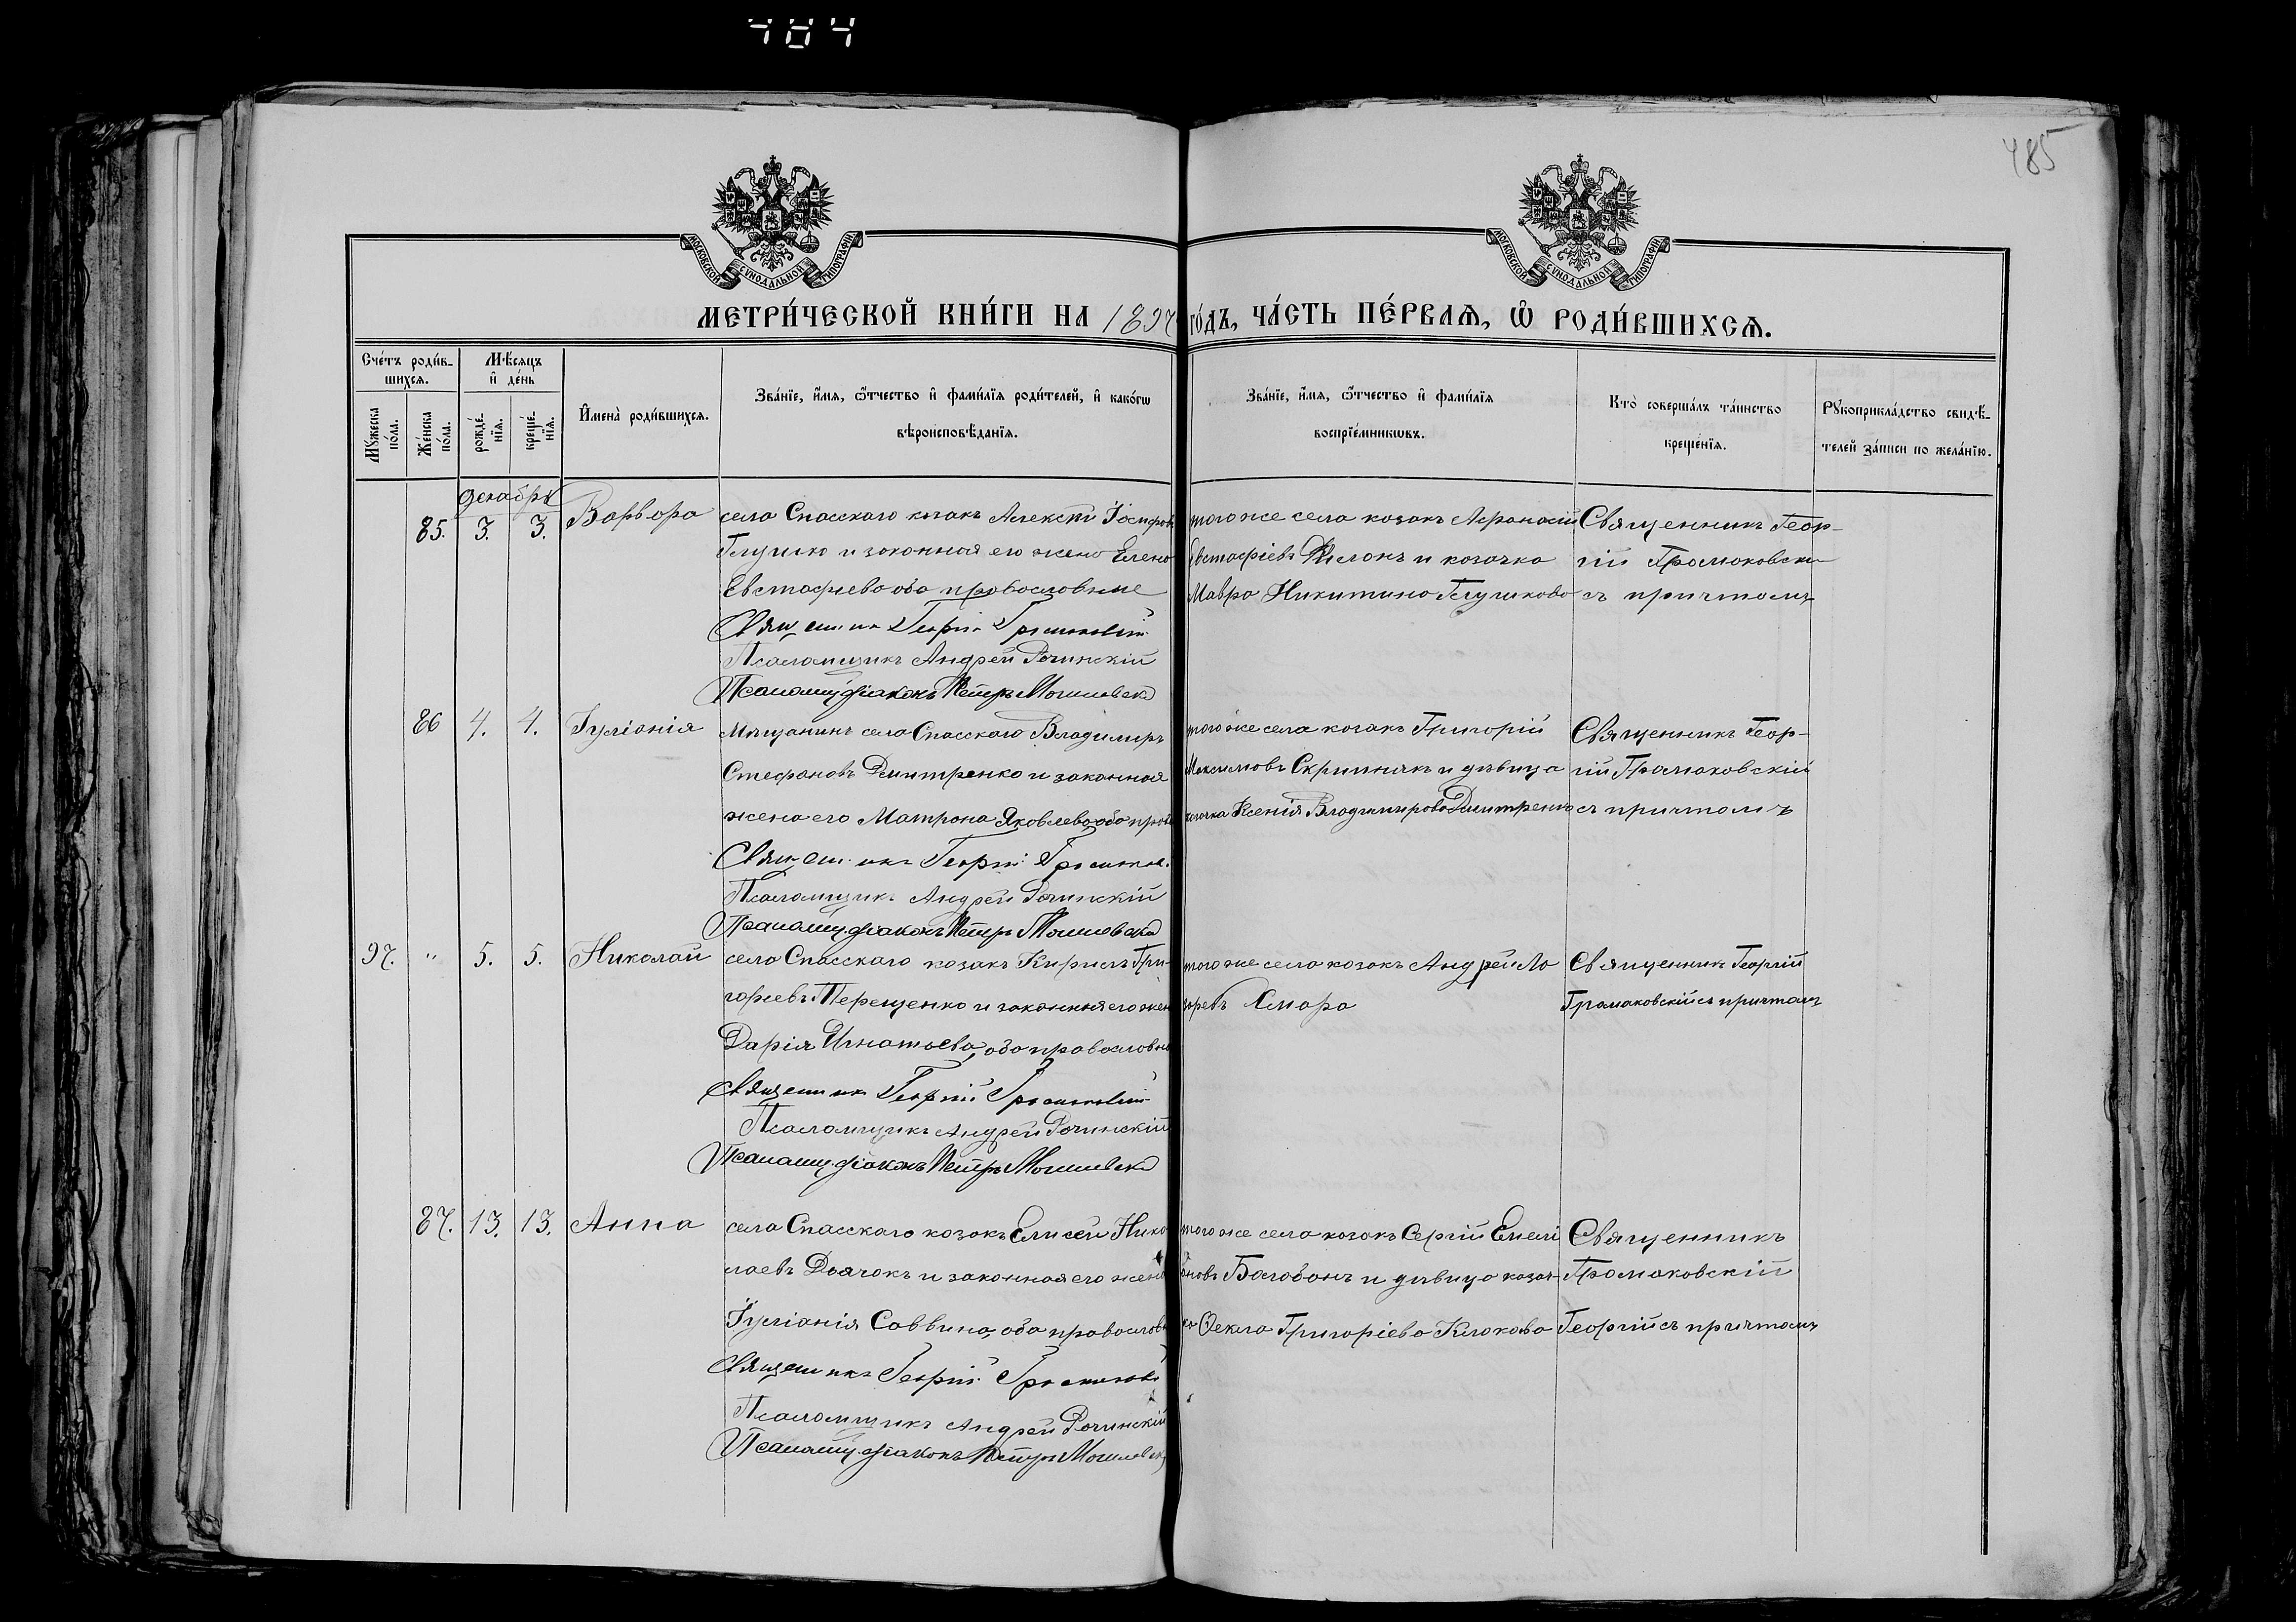 484
485
МОСКОВСКОЙ СѴНОДАЛЬНОЙ ТИПОГРАФІИ
МОСКОВСКОЙ СѴНОДАЛЬНОЙ ТИПОГРАФІИ
МЕТРИ́ЧЕСКОЙ КНИ́ГИ НА 1897 ГО́ДЪ, ЧА́СТЬ ПЕ́РВАѦ, Ѡ҆ РОДИ́ВШИХСѦ.
Сче́тъ роди́в-
шихсѧ.
Мѣ́сѧцъ
и҆ де́нь
Мꙋ́жеска
по́ла.
Же́нска
по́ла.
рожде́-
нїѧ.
креще́-
нїѧ.
И҆мена̀ роди́вшихсѧ.
Зва́нїе, и҆́мѧ, ѻ҆́тчество и҆ фами́лїѧ роди́телей, и҆ како́гѡ
вѣроисповѣ́данїѧ.
Зва́нїе, и҆́мѧ, ѻ҆́тчество и҆ фами́лїѧ
воспрїе́мникѡвъ.
Кто̀ соверша́лъ та́инство
креще́нїѧ.
Рꙋкоприкла́дство свидѣ́-
телей за́писи по жела́нїю.
декабрь
85. 3. 3. Варвара
села Спасскаго козакъ Алексѣй Іосифовъ
Глушко и законная его жена Елена
Евстафіева оба православные
Священникъ Георгій Громаковскій
Псаломщикъ Андрей Рочинскій
Псаломщ. діаконъ Петръ Могилевскій
того же села козакъ Афанасій
Евстафіевъ и козачка
Мавра Никитина Глушкова
Священникъ Геор-
гій Громаковскій
съ причтомъ
86 4. 4. Іуліанія
Мѣщанинъ села Спасскаго Владимиръ
Стефановъ Дмитренко и законная
жена его Матрона Яковлева, оба прав.
Священникъ Георгій Громаков.
Псаломщикъ Андрей Рочинскій
Псаломщ. діаконъ Петръ Могилевскій
того же села козакъ Григорій
Максимовъ Скрипникъ и дѣвица
козачка Ксенія Владимирова Дмитренко
Священникъ Геор-
гій Громаковскій
съ причтомъ
97. " 5. 5. Николай
села Спасскаго козакъ Кириллъ Гри-
горьевъ Терещенко и законная его жена
Дарія Игнатьева, оба православн.
Священникъ Георгій Громаковскій
Псаломщикъ Андрей Рочинскій
Псаломщ. діаконъ Петръ Могилевскій
того же села козакъ Андрей Ла
заревъ Хмара
Священникъ Георгій
Громаковскій съ причтомъ
87. 13. 13. Анна
села Спасскаго козакъ Елисей Нико
лаевъ Дьячокъ и законная его жена
Іуліанія Саввина, оба православн
Священникъ Георгій Громаков
Псаломщикъ Андрей Рочинскій
Псаломщ. діаконъ Петръ Могилевск
того же села козакъ Сергій Емелі
ановъ Балабанъ и дѣвица козач-
ка Ѳекла Григоріева Клокова
Священникъ
Громаковскій
Георгій съ причтомъ